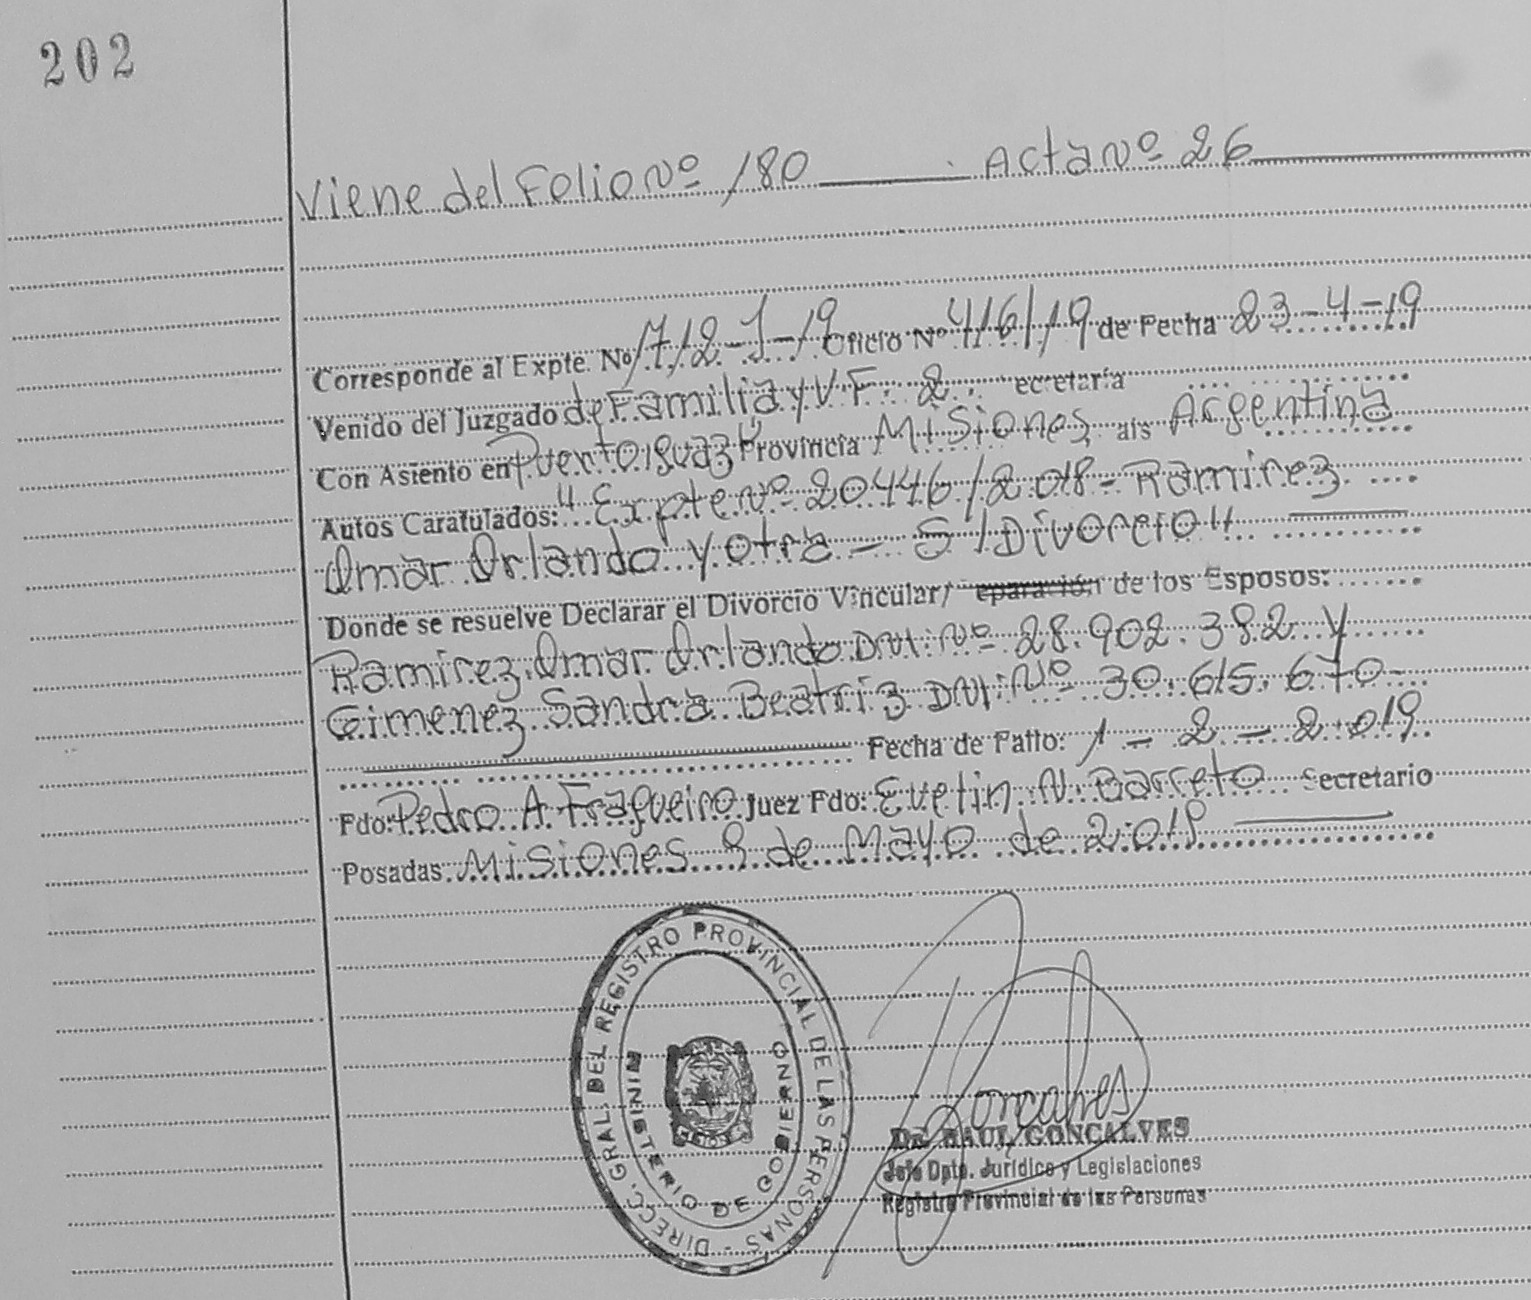 202
Viene del Folio Nº 180 Acta Nº 26
Corresponde al Expte. Nº 1712-J-19 Oficio Nº 416/19 de Fecha 23-4-19
Venido del Juzgado de Familia y V.F. 2. ecretaría
Con Asiento en Puerto Iguazú Provincia Misiones aís Argentina
Autos Caratulados: "Expte Nº 20446/2018 - Ramirez
Omar Orlando y otra - S/Divorcio"
Donde se resuelve Declarar el Divorcio Vincular/ eparación de los Esposos:
Ramirez Omar Orlando DNI: Nº 28.902.382 y
Gimenez Sandra Beatriz DNI: Nº 30.615.670
Fecha de Fallo: 1 - 2 - 2019
Fdo: Pedro A. Fragueiro Juez Fdo: Evelin N. Barreto Secretario
Posadas: Misiones 8 de Mayo de 2019
DIRECC. GRAL. DEL REGISTRO PROVINCIAL DE LAS PERSONAS -
MINISTERIO DE GOBIERNO
Goncalves
DR. RAUL GONCALVES
Jefe Dpto. Jurídico y Legislaciones
Registro Provincial de las Personas